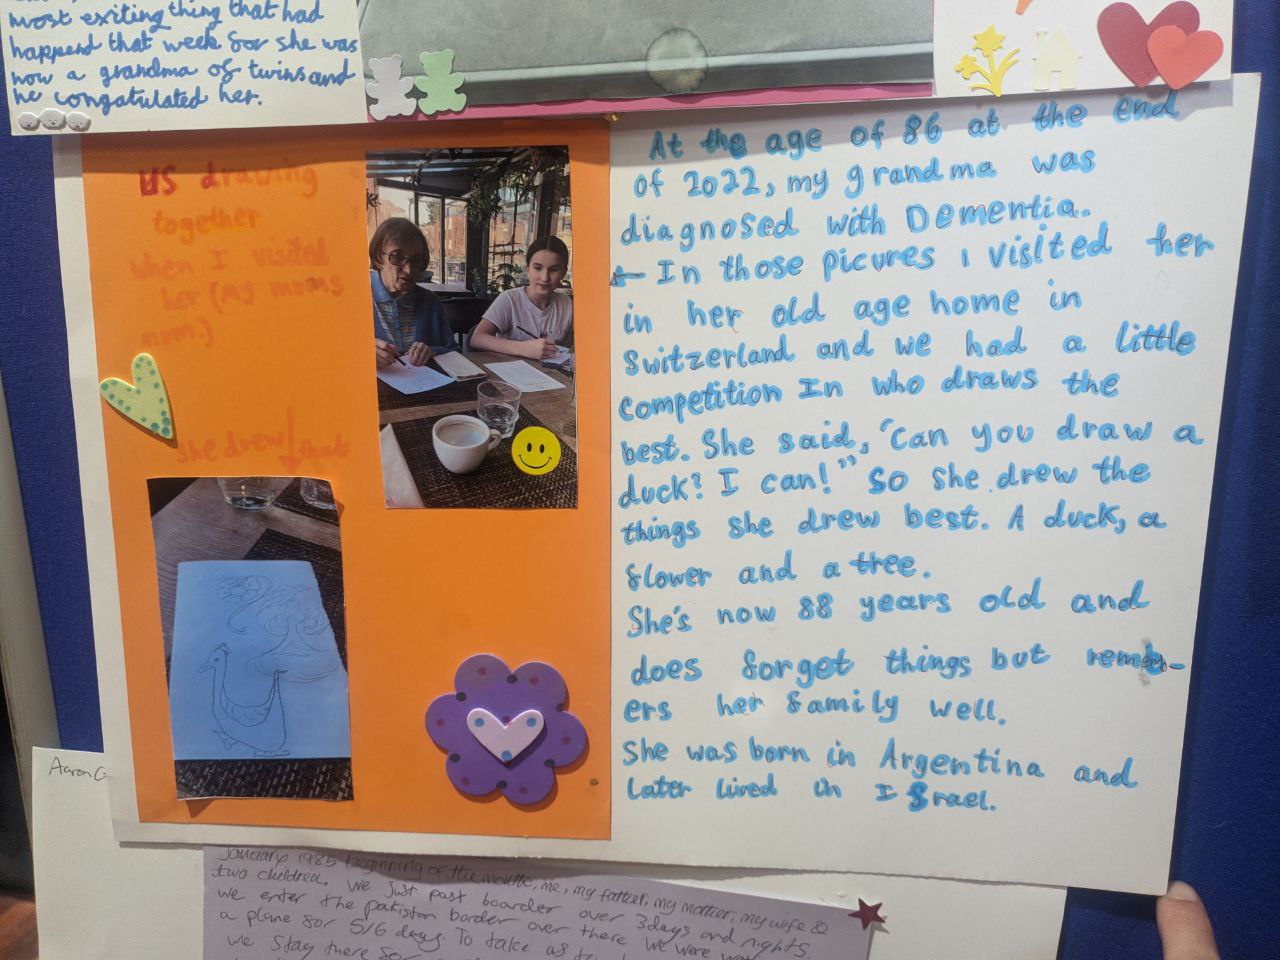 most exiting thing that had
happend that week for she was
now a grandma of twins and
he congatulated her.
US drawing
together
when I visited
her (my mums
mum.)
She drew that
At the age of 86 at the end
of 2022, my grandma was
diagnosed with Dementia.
← In those picures I visited her
in her old age home in
Switzerland and we had a little
competition In who draws the
best. She said, "Can you draw a
duck? I can!" So she drew the
things she drew best. A duck, a
flower and a tree.
She's now 88 years old and
does forget things but remem-
ers her family well.
She was born in Argentina and
later lived in ISrael.
Aaron G
January 1985 beginning of the mounthe, me, my father, my mother, my wife &
two children. We just past boarder over 3days and nights.
we enter the pakistan border over there we were
a plane for 5/6 days. To take as
we stay there for